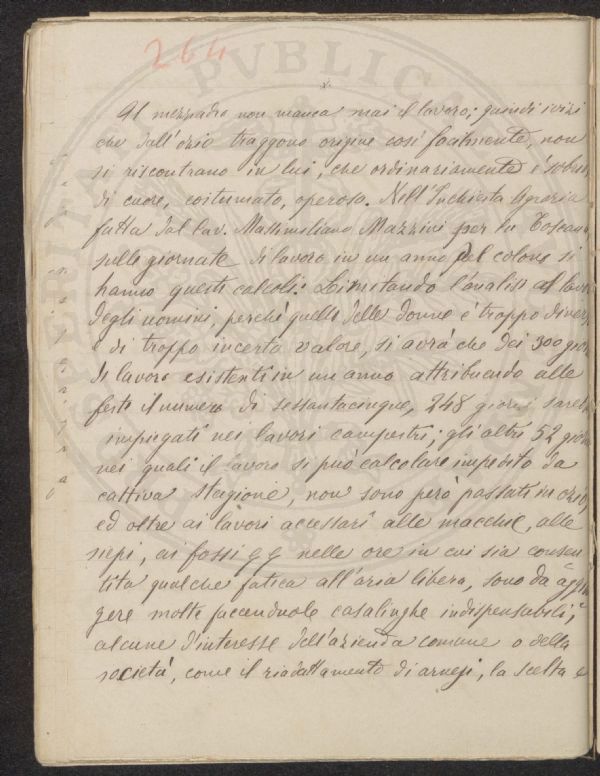 264
Al mezzadro non manca mai il lavoro; quindi i vizi
che dall'ozio traggono origine così facilmente, non
si riscontrano in lui, che ordinariamente è sobrio,
di cuore, costumato, operoso. Nell'Inchiesta Agraria
fatta dal Cav. Massimiliano Mazzini per la Toscana
sulle giornate di lavoro in un anno del colono si
hanno questi calcoli: Limitando l'analisi al lav
degli uomini, perchè quello delle donne è troppo divers
e di troppo incerto valore, si avrà che dei 300 gior
di lavoro esistenti in un anno attribuendo alle
feste il numero di sessantacinque, 248 giorni sareb
impiegati nei lavori campestri; gli altri 52 gior
nei quali il lavoro si può calcolare impedito da
cattiva stagione, non sono però passati in ozio,
ed oltre ai lavori accessari alle macchie, alle
siepi, ai fossi nelle ore in cui sia consen
tita qualche fatica all'aria libera, sono da aggiu
gere molte faccenduole casalinghe indispensabili,
alcune d'interesse dell'azienda comune o della
società, come il riadattamento di arnesi, la scelta e